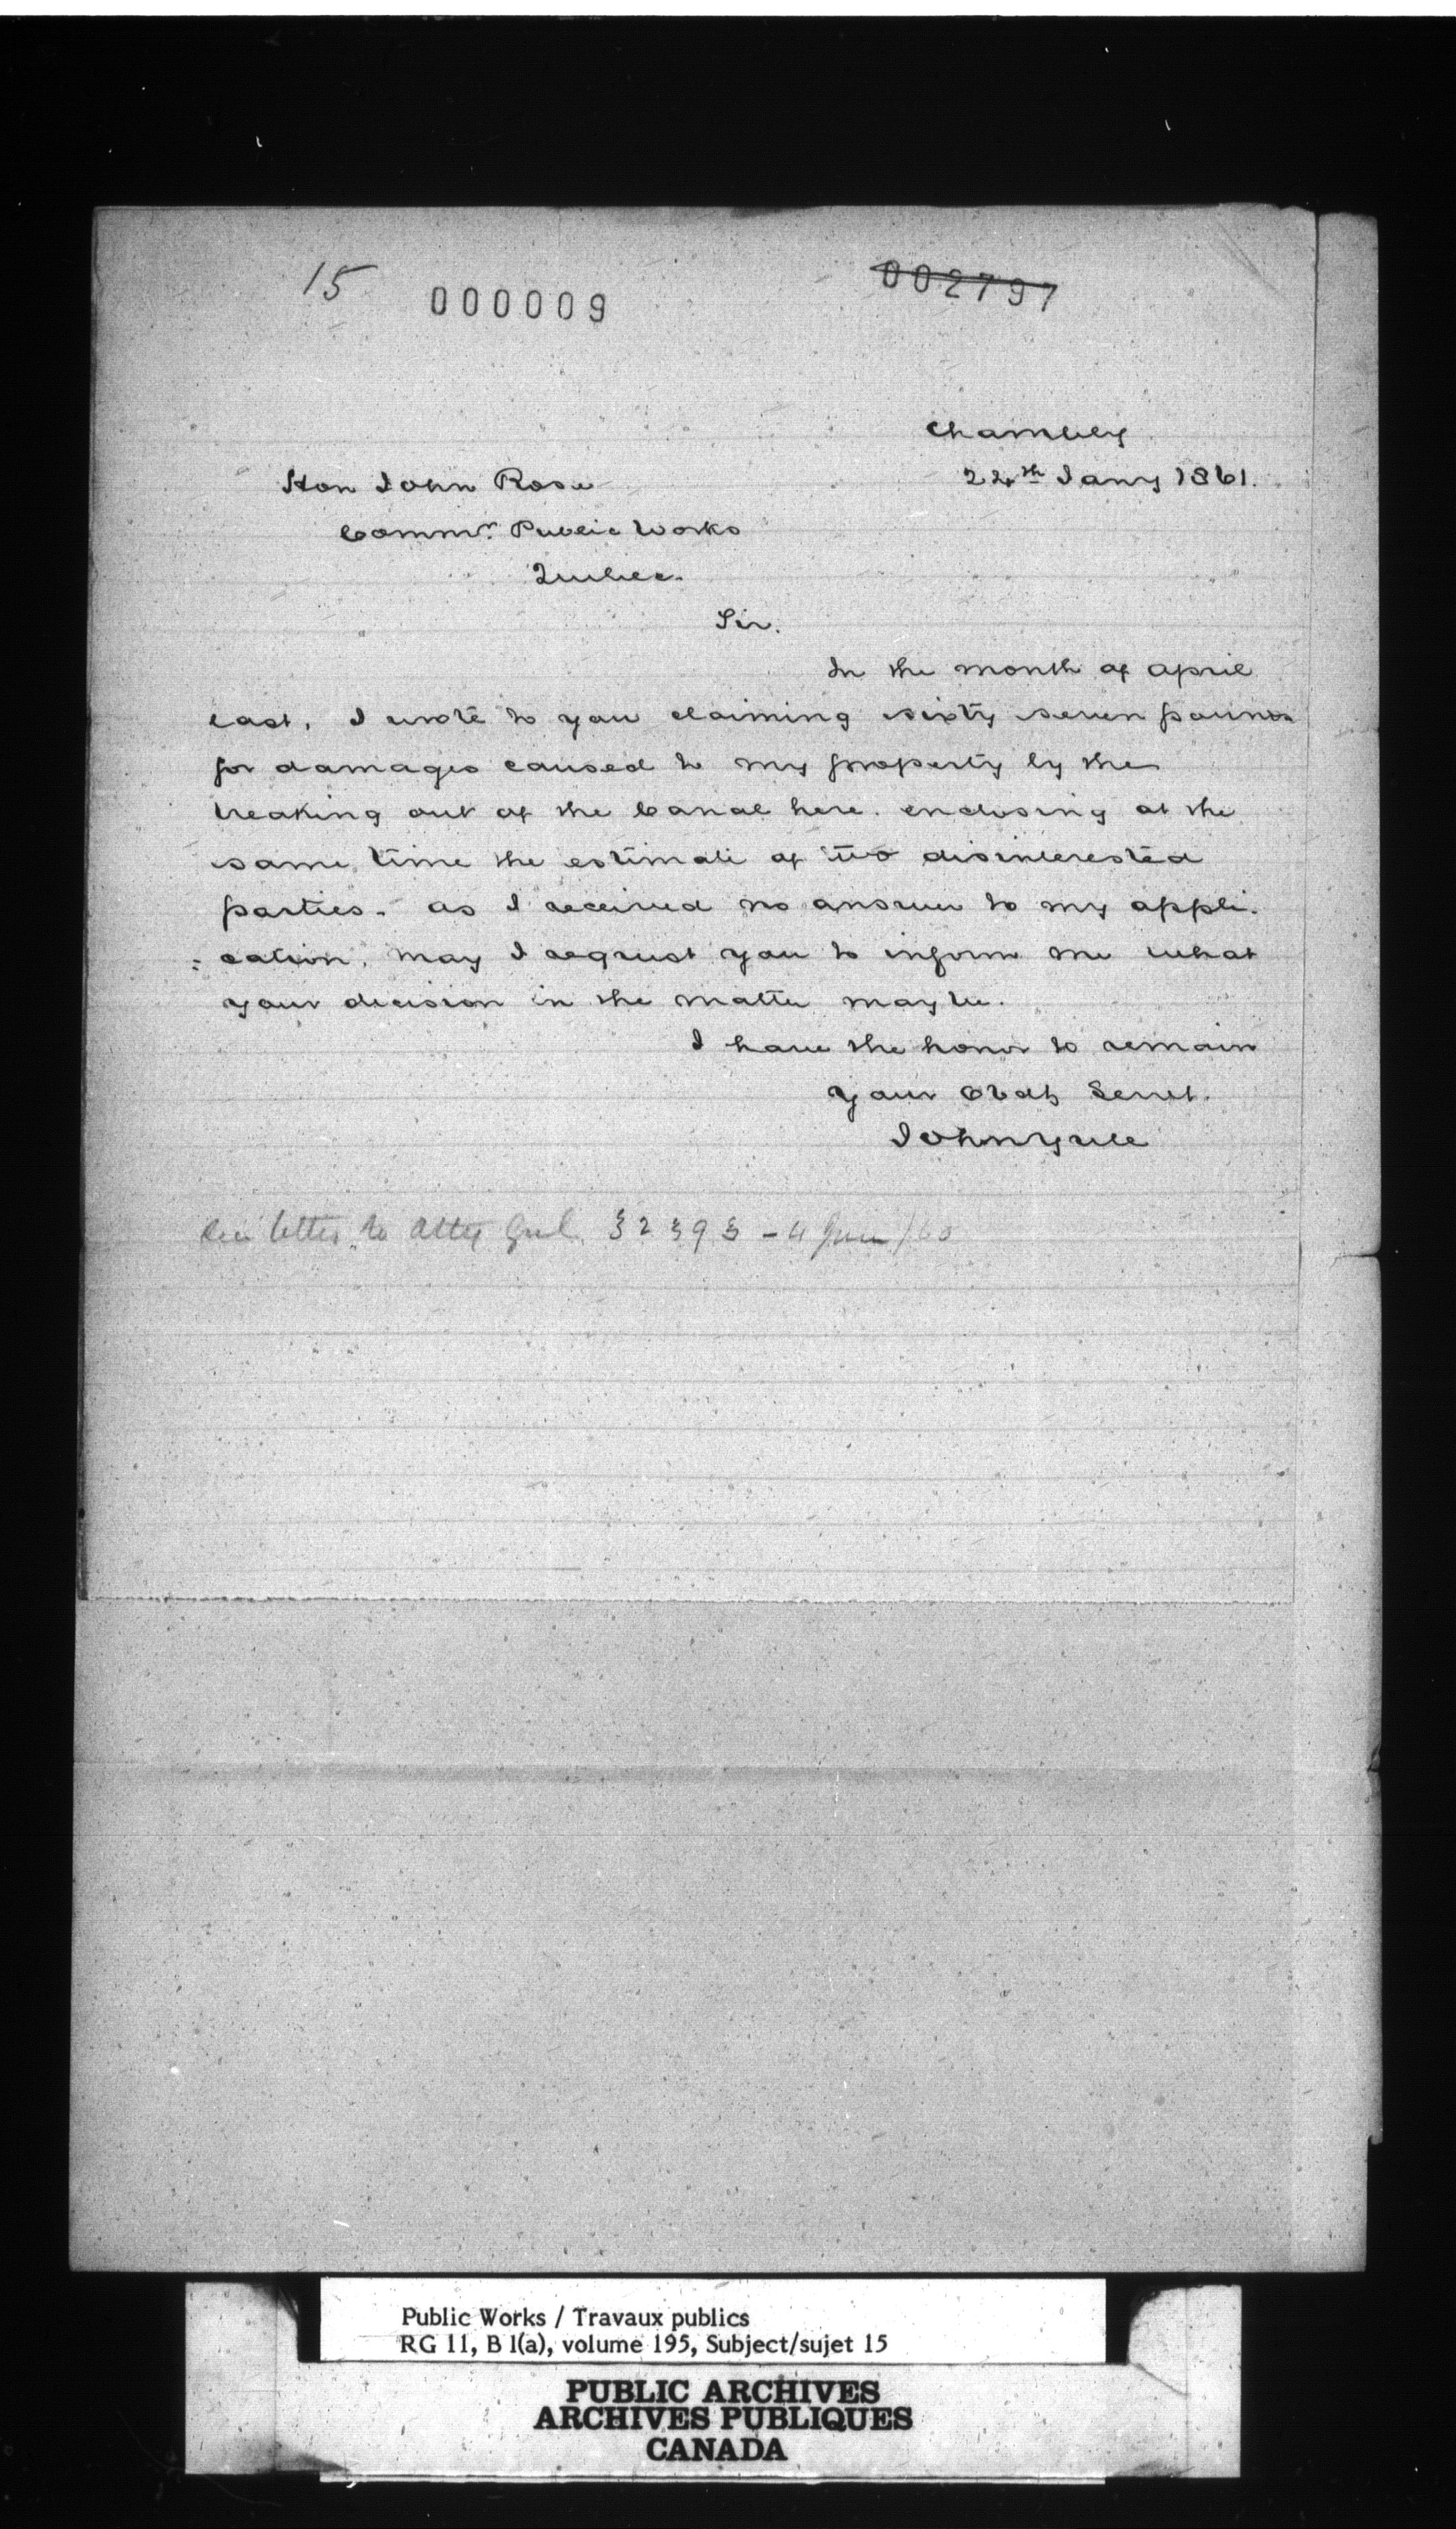 15
000009
002797
Chambly
24th Jany 1861.
Hon John Rose
Commr. Public Works
Quebec.
Sir.
In the month of April
last, I wrote to you claiming sixty seven pounds
for damages caused to my property by the
breaking out of the Canal here. enclosing at the
same time the estimate of two disinterested
parties. as I received no answer to my appli-
:cation. may I request you to inform me what
your decision in the matter may be.
I have the honor to remain
your Obdt Servt.
John Yule
See letter to Atty Genl 32393 - 4 June/60
Public Works / Travaux publics
RG 11, B 1(a), volume 195, Subject/sujet 15
PUBLIC ARCHIVES
ARCHIVES PUBLIQUES
CANADA